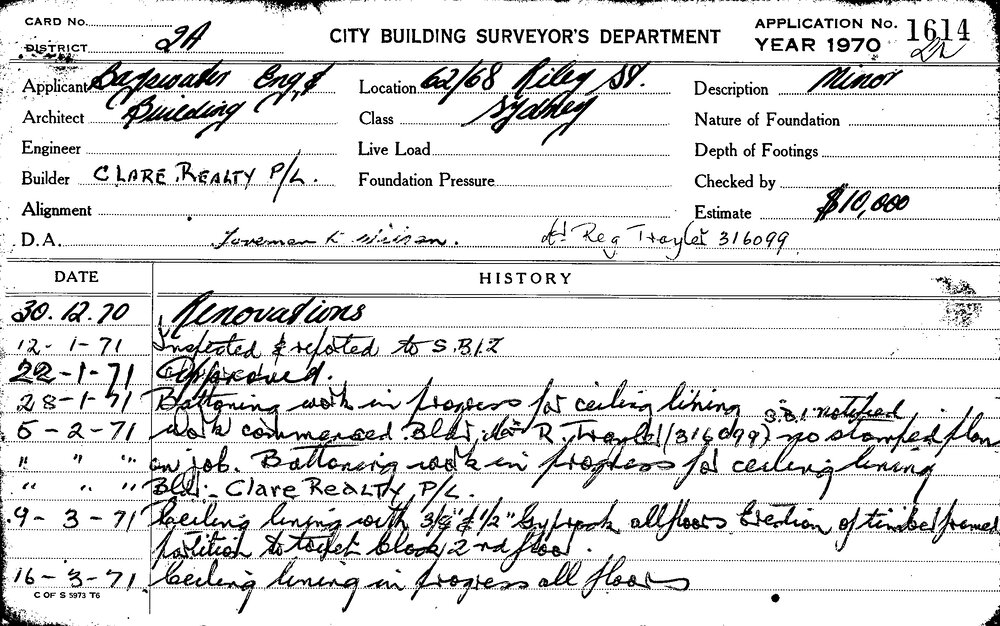 CARD No.
DISTRICT 2A
CITY BUILDING SURVEYOR'S DEPARTMENT
APPLICATION No. 1614
YEAR 1970
Applicant Bayswater Eng &
Location 62/68 Riley St.
Description Minor
Architect Building
Class Sydney
Nature of Foundation
Engineer
Live Load
Depth of Footings
Builder CLARE REALTY P/L.
Foundation Pressure
Checked by
Alignment
Estimate $10,000
D.A. Foreman Reg Trayler 316099
DATE HISTORY
30.12.70 Renovations
12-1-71 Inspected & reported to S.B.I.
22-1-71 Approved.
28-1-71 Battoning work in progress for ceiling lining S.B.I. notified
5-2-71 work commenced. Bldr, Mr R. Trayler (316099) no stamped plans
" " " on job. Battoning work in progress for ceiling lining
" " " Bldr - Clare Realty P/L.
9-3-71 Ceiling lining with 3/8" & 1/2" Gyprock all floors Erection of timber framed
partition to toilet block 2nd floor.
16-3-71 Ceiling lining in progress all floors
C OF S 5973 T6